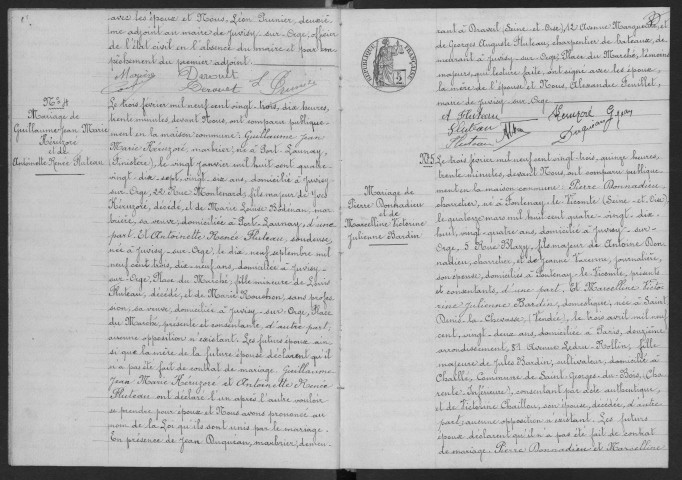 avec les époux et Nous, Léon Prunier, deuxiè-
me adjoint au maire de Juvisy-sur-Orge, officier
de l'état civil en l'absence du maire et par em-
pêchement du premier adjoint.
Derouet
Derouet
N° 4
Mariage de
Guillaume Jean Marie
Kérizoré
et de
Antoinette Renée Fluteau
Le trois février mil neuf cent vingt-trois, dix heures,
trente minutes devant Nous, ont comparu publique-
ment en la maison commune: Guillaume Jean
Marie Kérizoré, marbrier, né à Port-Launay,
(Finistère), le vingt janvier mil huit cent quatre-
vingt-dix-sept, vingt-six ans, domicilié à Juvisy-
sur-Orge, 22 Rue Montessard, fils majeur de Yves
Kérizoré, décédé, et de Marie Louise Bodénan, mar-
brière, sa veuve, domiciliée à Port-Launay, d'une
part. Et Antoinette Renée Fluteau, soudeuse,
née à Juvisy-sur-Orge, le dix neuf septembre mil
neuf cent trois, dix-neuf ans, domiciliée à Juvisy-
sur-Orge, Place du Marché, fille mineure de Louis
Fluteau, décédé, et de Marie sans profes-
sion, sa veuve, domiciliée à Juvisy-sur-Orge, Place
du Marché, présente et consentante, d'autre part;
aucune opposition n'existant. Les futurs époux ain-
si que la mère de la future épouse déclarent qu'il
n'a pas été fait de contrat de mariage. Guillaume
Jean Marie Kérizoré et Antoinette Renée
Fluteau ont déclaré l'un après l'autre vouloir
se prendre pour époux et Nous avons prononcé au
nom de la Loi qu'ils sont unis par le mariage.
En présence de Jean Duquéan, marbrier, demeu-
rant à Draveil, Seine-et-Oise, 12 Avenue Marguerite et
de Georges Auguste Fluteau, charpentier de bateaux, de-
meurant à Juvisy-sur-Orge, Place du Marché, témoins
majeurs, qui, lecture faite, ont signé avec les époux,
la mère de l'épouse et Nous, Alexandre Feuillet,
maire de Juvisy-sur-Orge.
RÉPUBLIQUE FRANÇAISE
A Fluteau
Fluteau
Fluteau
Duquéan
N° 5
Mariage de
Pierre Bonnadieu
et de
Marcelline Victorine
Julienne Bardin
Le trois février mil neuf cent vingt-trois, quinze heures,
trente minutes, devant Nous ont comparu publique-
ment en la maison commune: Pierre Bonnadieu,
charretier, né à Fontenay-le-Vicomte (Seine-et-Oise),
le quatorze mars mil huit cent quatre-vingt-dix-
huit, vingt-quatre ans, domicilié à Juvisy-sur-
Orge, 5 Rue Blazy, fils majeur de Antoine Bon-
nadieu, charretier, et de Jeanne journalière,
son épouse, domiciliés à Fontenay-le-Vicomte, présents
et consentants, d'une part. Et Marcelline Victo-
rine Julienne Bardin, domestique, née à Saint
Denis-la-Chevasse (Vendée), le trois avril mil neuf
cent, vingt-deux ans, domiciliée à Paris, douzième
arrondissement, 81 Avenue Ledru-Rollin, fille
majeure de Jules Bardin, cultivateur, domicilié à
Chaillé, Commune de Saint-Georges-du-Bois, (Cha-
rente Inférieure), consentant par acte authentique,
et de Victorine Chaillou, son épouse, décédée, d'autre
part; aucune opposition n'existant. Les futurs
époux déclarent qu'il n'a pas été fait de contrat
de mariage. Pierre Bonnadieu et Marcelline